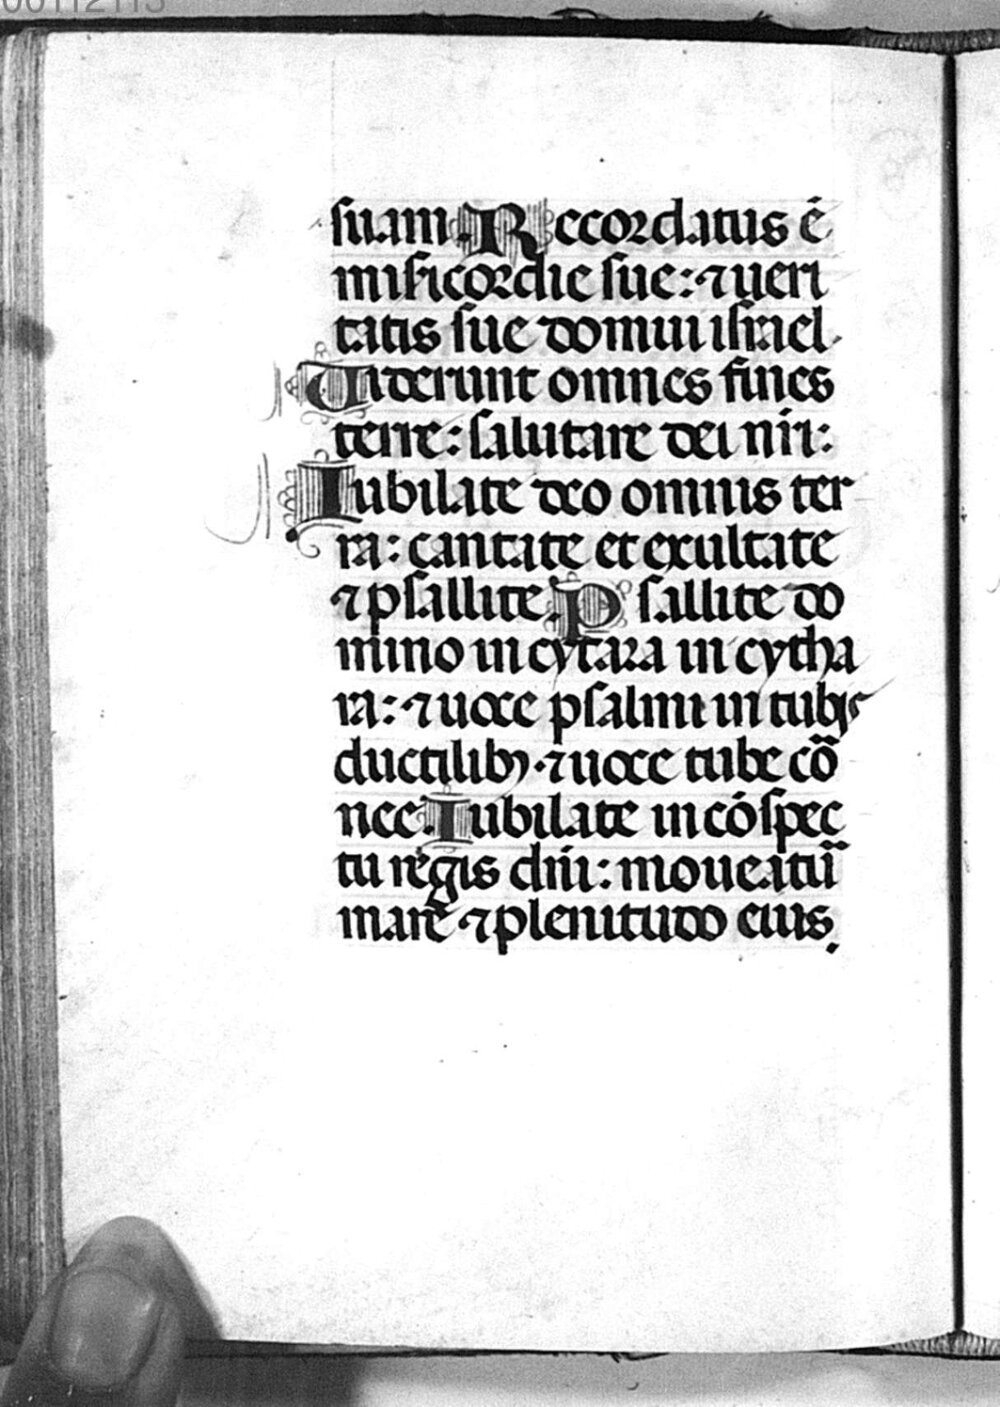 00112113
suam. Recordatus ē
misericordie sue: ⁊ ueri
tatis sue domui israel.
Uiderunt omnes fines
terre: salutare dei nr̄i:
Iubilate deo omnis ter
ra: cantate et exultate
⁊ psallite. Psallite do
mino in cytara in cytha
ra: ⁊ uoce psalmi in tubis
ductilibꝫ. ⁊ uoce tube cō
nee. Iubilate in cōspec
tu regis dn̄i: moueatū
mare ⁊ plenitudo eius.